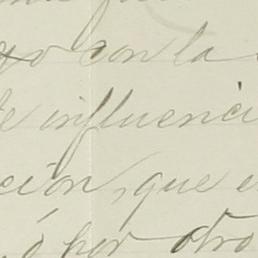 go con la
de influenci
ción, que e
ó por otro